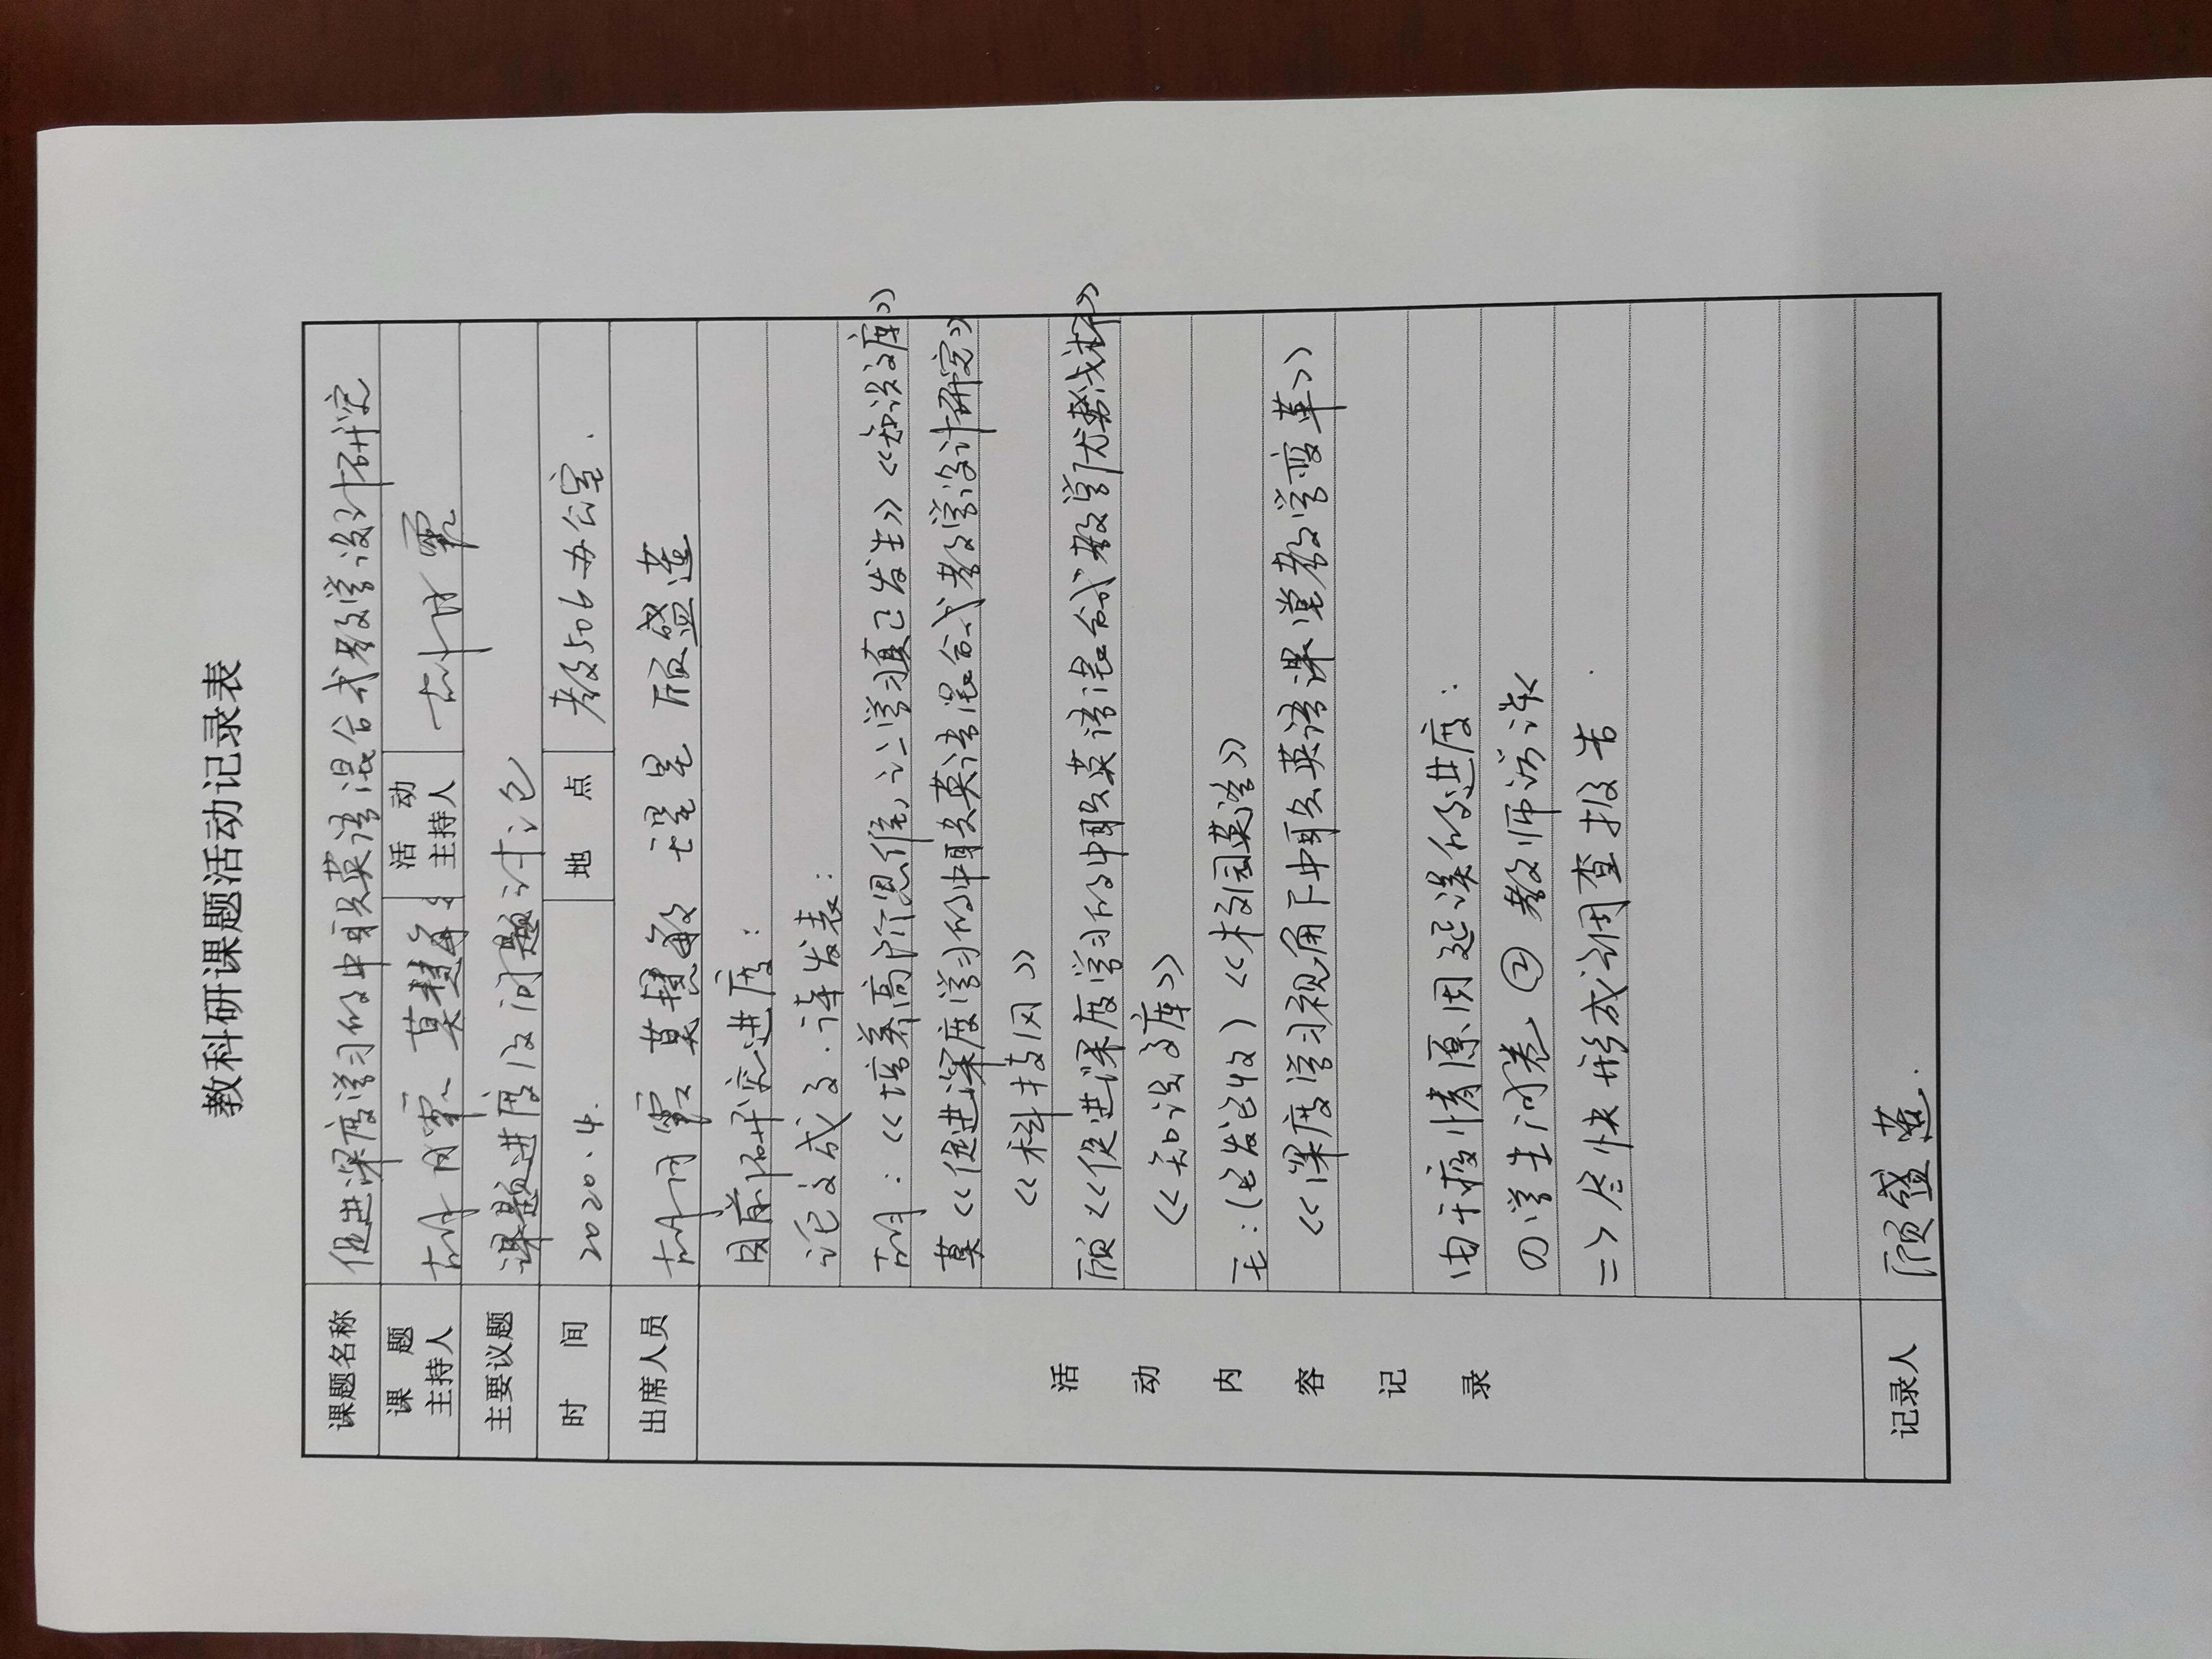 教科研课题活动记录表
课题名称 促进深度学习的中职英语混合式教学设计研究
课题主持人 胡丹霞 莫慧敏 活动主持人 胡丹霞
主要议题 课题进度及问题讨论
时间 2020.4. 地点 教506办公室.
出席人员 胡丹霞 莫慧敏 王星星 顾盛莲
活动内容记录
目前研究进度：
论文成文.待发表：
胡：《培养高阶思维，让学习真正发生》《知识文库》
莫《促进深度学习的中职英语混合式教学设计研究》
《科技风》
顾《促进深度学习的中职英语混合式教学优势浅析》
《知识文库》
王：(已发已收)《校园英语》
《深度学习视角下中职英语课堂教学变革》
由于疫情原因延误的进度：
①学生问卷 ② 教师访谈
=> 尽快形成调查报告.
记录人 顾盛莲.